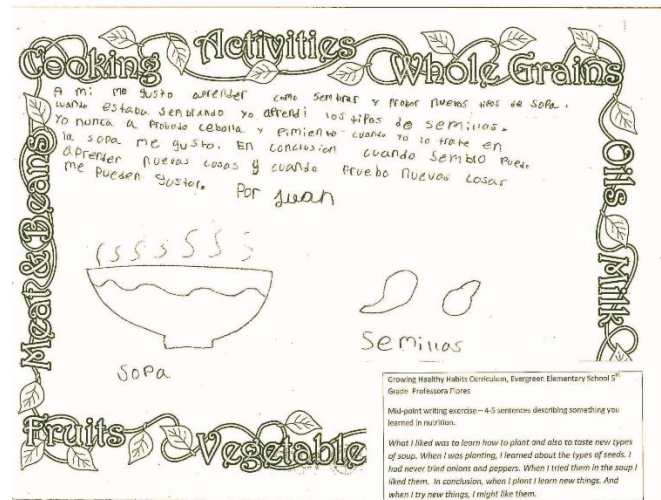 Cooking
Activities
Whole Grains
A mi me gusto aprender como sembrar y probar nuevos tipos de sopa.
cuando estaba sembrando yo aprendi los tipos de semillas.
Yo nunca a probado cebolla y pimiento cuando yo lo trate en
la sopa me gusto. En conclusion cuando sembro puedo
aprender nuevas cosas y cuando pruebo nuevas cosas
me pueden gustar.
Por Juan
Meat & Beans
Oils
Milk
Sopa
Semillas
Fruits
Vegetable
Growing Healthy Habits Curriculum, Evergreen Elementary School 5th
Grade Professora Flores
Mid-point writing exercise – 4-5 sentences describing something you
learned in nutrition.
What I liked was to learn how to plant and also to taste new types
of soup. When I was planting, I learned about the types of seeds. I
had never tried onions and peppers. When I tried them in the soup I
liked them. In conclusion, when I plant I learn new things. And
when I try new things, I might like them.